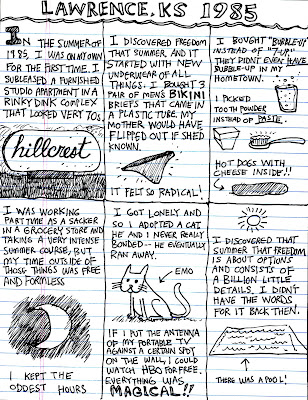 LAWRENCE, KS 1985
IN THE SUMMER OF
1985, I WAS ON MY OWN
FOR THE FIRST TIME. I
SUBLEASED A FURNISHED
STUDIO APARTMENT IN A
RINKY DINK COMPLEX
THAT LOOKED VERY 70s.
Chillcrest
I DISCOVERED FREEDOM
THAT SUMMER, AND IT
STARTED WITH NEW
UNDERWEAR OF ALL
THINGS. I BOUGHT 3
PAIR OF MEN'S BIKINI
BRIEFS THAT CAME IN
A PLASTIC TUBE. MY
MOTHER WOULD HAVE
FLIPPED OUT IF SHE'D
KNOWN.
IT FELT SO RADICAL!
I BOUGHT "BUBBLE-UP"
INSTEAD OF "7-UP".
THEY DIDN'T EVEN HAVE
BUBBLE-UP IN MY
HOMETOWN.
I PICKED
TOOTH POWDER
INSTEAD OF PASTE.
HOT DOGS WITH
CHEESE INSIDE!!
I WAS WORKING
PART TIME AS A SACKER
IN A GROCERY STORE AND
TAKING A VERY INTENSE
SUMMER COURSE, BUT
MY TIME OUTSIDE OF
THOSE THINGS WAS FREE
AND FORMLESS
I KEPT THE
ODDEST HOURS
I GOT LONELY AND
SO I ADOPTED A CAT
HE AND I NEVER REALLY
BONDED-- HE EVENTUALLY
RAN AWAY.
EMO
IF I PUT THE ANTENNA
OF MY PORTABLE TV
AGAINST A CERTAIN SPOT
ON THE WALL, I COULD
WATCH HBO FOR FREE.
EVERYTHING WAS
MAGICAL!!
I DISCOVERED THAT
SUMMER THAT FREEDOM
IS ABOUT OPTIONS
AND CONSISTS OF
A BILLION LITTLE
DETAILS. I DIDN'T
HAVE THE WORDS
FOR IT BACK THEN.
THERE WAS A POOL!